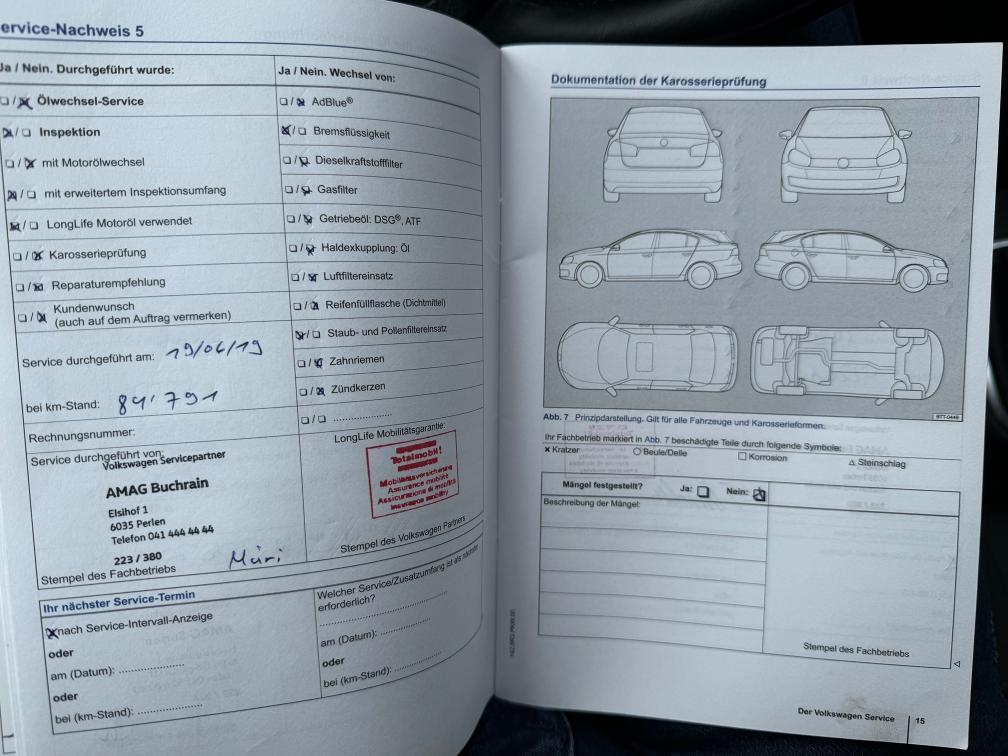 ervice-Nachweis 5
Ja / Nein. Durchgeführt wurde:
Ölwechsel-Service
Inspektion
mit Motorölwechsel
mit erweitertem Inspektionsumfang
LongLife Motoröl verwendet
Karosserieprüfung
Reparaturempfehlung
Kundenwunsch
(auch auf dem Auftrag vermerken)
Service durchgeführt am: 19/06/19
bei km-Stand: 84'791
Rechnungsnummer:
Service durchgeführt von:
Volkswagen Servicepartner
AMAG Buchrain
Elsihof 1
6035 Perlen
Telefon 041 444 44 44
223 / 380
Stempel des Fachbetriebs
Ja / Nein. Wechsel von:
AdBlue®
Bremsflüssigkeit
Dieselkraftstofffilter
Gasfilter
Getriebeöl: DSG®, ATF
Haldexkupplung: Öl
Luftfiltereinsatz
Reifenfüllflasche (Dichtmittel)
Staub- und Pollenfiltereinsatz
Zahnriemen
Zündkerzen
LongLife Mobilitätsgarantie:
Totalmobil!
Mobilitätsversicherung
Assurance mobilité
Assicurazione di mobilità
Insurance mobility
Stempel des Volkswagen Partners
Ihr nächster Service-Termin
nach Service-Intervall-Anzeige
oder
am (Datum): ....................
oder
bei (km-Stand): ....................
Welcher Service/Zusatzumfang ist als nächster
erforderlich?
am (Datum): ....................
oder
bei (km-Stand): ....................
Dokumentation der Karosserieprüfung
Abb. 7 Prinzipdarstellung. Gilt für alle Fahrzeuge und Karosserieformen.
Ihr Fachbetrieb markiert in Abb. 7 beschädigte Teile durch folgende Symbole:
Kratzer Beule/Delle Korrosion Steinschlag
Mängel festgestellt? Ja: Nein:
Beschreibung der Mängel:
Stempel des Fachbetriebs
Der Volkswagen Service 15